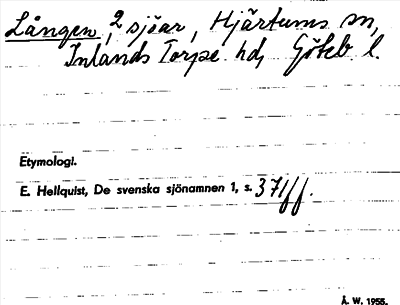 Lången, 2 sjöar, Hjärtums sn,
Inlands Torpe hd, Göteb l.
Etymologi.
E. Hellquist, De svenska sjönamnen 1, s. 371ff.
Å. W. 1955.